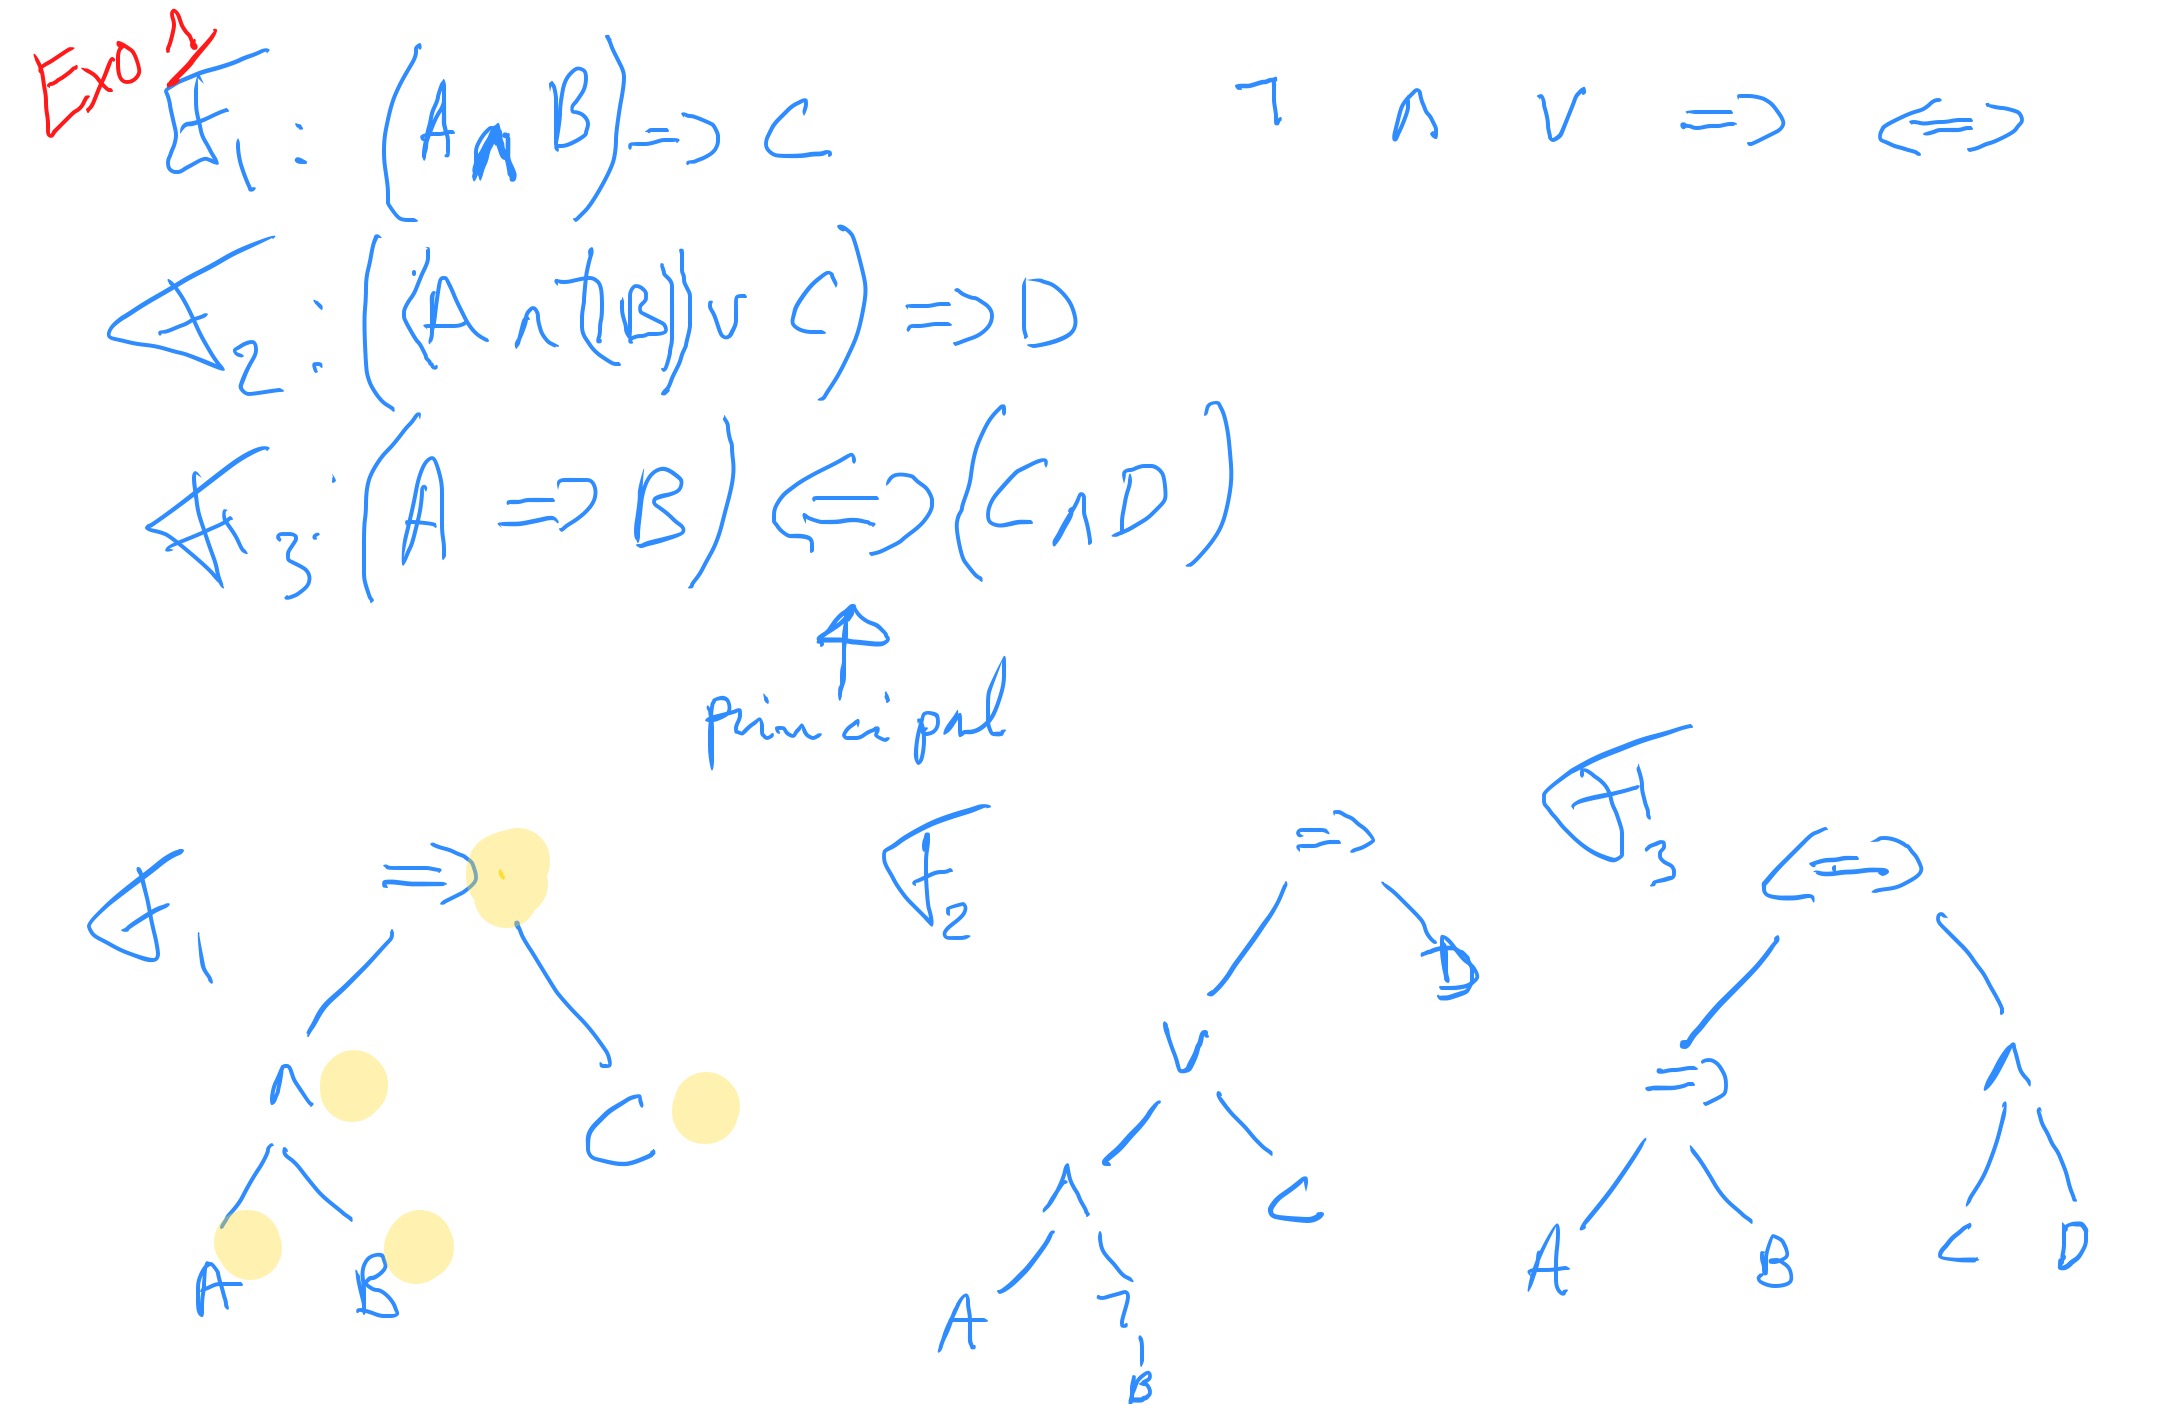 Exo 1
F1 : (A ∧ B) => C
¬ ∧ ∨ => <=>
F2 : ((A ∧ ¬(B)) ∨ C) => D
F3 : (A => B) <=> (C ∧ D)
principal
F1
=>
∧ C
A B
F2
=>
D
∨
∧ C
A ¬
B
F3
<=>
=> ∧
A B C D